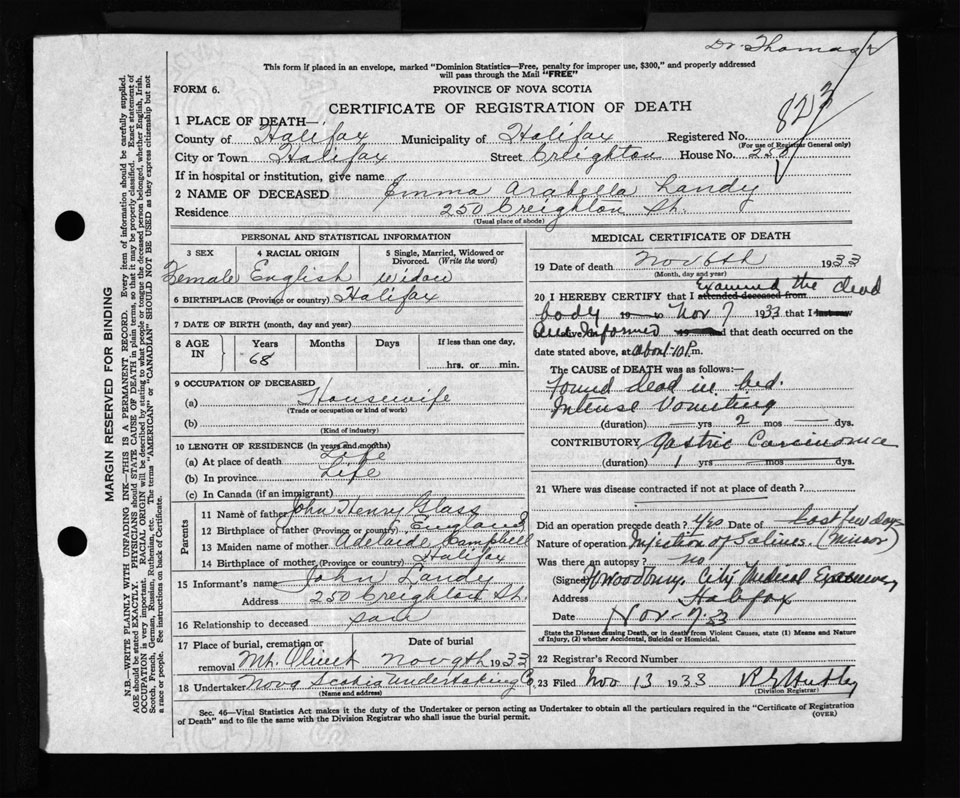 Dr. Thomas
This form if placed in an envelope, marked "Dominion Statistics—Free, penalty for improper use, $300," and properly addressed
will pass through the Mail "FREE"
FORM 6. PROVINCE OF NOVA SCOTIA
CERTIFICATE OF REGISTRATION OF DEATH
823
1 PLACE OF DEATH—
County of Halifax Municipality of Halifax Registered No.
(For use of Registrar General only)
City or Town Halifax Street Creighton House No. 250
If in hospital or institution, give name
2 NAME OF DECEASED Emma Arabella Landy
Residence 250 Creighton St.
(Usual place of abode)
PERSONAL AND STATISTICAL INFORMATION
3 SEX 4 RACIAL ORIGIN 5 Single, Married, Widowed or
Divorced. (Write the word)
Female English widow
6 BIRTHPLACE (Province or country) Halifax
7 DATE OF BIRTH (month, day and year)
8 AGE IN Years Months Days If less than one day,
68 hrs. or min.
9 OCCUPATION OF DECEASED
(a) Housewife
(Trade or occupation or kind of work)
(b)
(Kind of industry)
10 LENGTH OF RESIDENCE (in years and months)
(a) At place of death Life
(b) In province Life
(c) In Canada (if an immigrant)
Parents
11 Name of father John Henry Glass
12 Birthplace of father (Province or country) England
13 Maiden name of mother Adelaide Campbell
14 Birthplace of mother (Province or country) Halifax
15 Informant's name John Landy
Address 250 Creighton St.
16 Relationship to deceased son
17 Place of burial, cremation or Date of burial
removal Mt. Olivet Nov 9th 1933
18 Undertaker Nova Scotia Undertaking Co.
(Name and address)
MEDICAL CERTIFICATE OF DEATH
19 Date of death Nov 6th 1933
(Month, day and year)
20 I HEREBY CERTIFY that I attended deceased from Examined the dead
body to Nov 7 1933 that I last saw
alive Informed that death occurred on the
date stated above, at about 10 P.m.
The CAUSE of DEATH was as follows:—
Found dead in bed.
Intense Vomiting
(duration) yrs 2 mos dys.
CONTRIBUTORY Gastric Carcinoma
(duration) 1 yrs mos dys.
21 Where was disease contracted if not at place of death?
Did an operation precede death? Yes Date of Last few days
Nature of operation Injection of Salines. (Minor)
Was there an autopsy? no
(Signed) Woodbury City Medical Examiner
Address Halifax
Date Nov. 7. 33
State the Disease causing Death, or in death from Violent Causes, state (1) Means and Nature
of Injury, (2) whether Accidental, Suicidal or Homicidal.
22 Registrar's Record Number
23 Filed Nov 13 1933
(Division Registrar)
Sec. 46—Vital Statistics Act makes it the duty of the Undertaker or person acting as Undertaker to obtain all the particulars required in the "Certificate of Registration
of Death" and to file the same with the Division Registrar who shall issue the burial permit. (OVER)
MARGIN RESERVED FOR BINDING
N.B.—WRITE PLAINLY WITH UNFADING INK—THIS IS A PERMANENT RECORD. Every item of information should be carefully supplied.
AGE should be stated EXACTLY. PHYSICIANS should STATE CAUSE OF DEATH in plain terms, so that it may be properly classified. Exact statement of
OCCUPATION is very important. RACIAL ORIGIN will be described by stating to what people or tongue the deceased person belonged, whether English, Irish,
Scotch, French, German, Russian, Ruthenian, etc. The terms "AMERICAN" or "CANADIAN" SHOULD NOT BE USED as they express citizenship but not
a race or people. See instructions on back of Certificate.